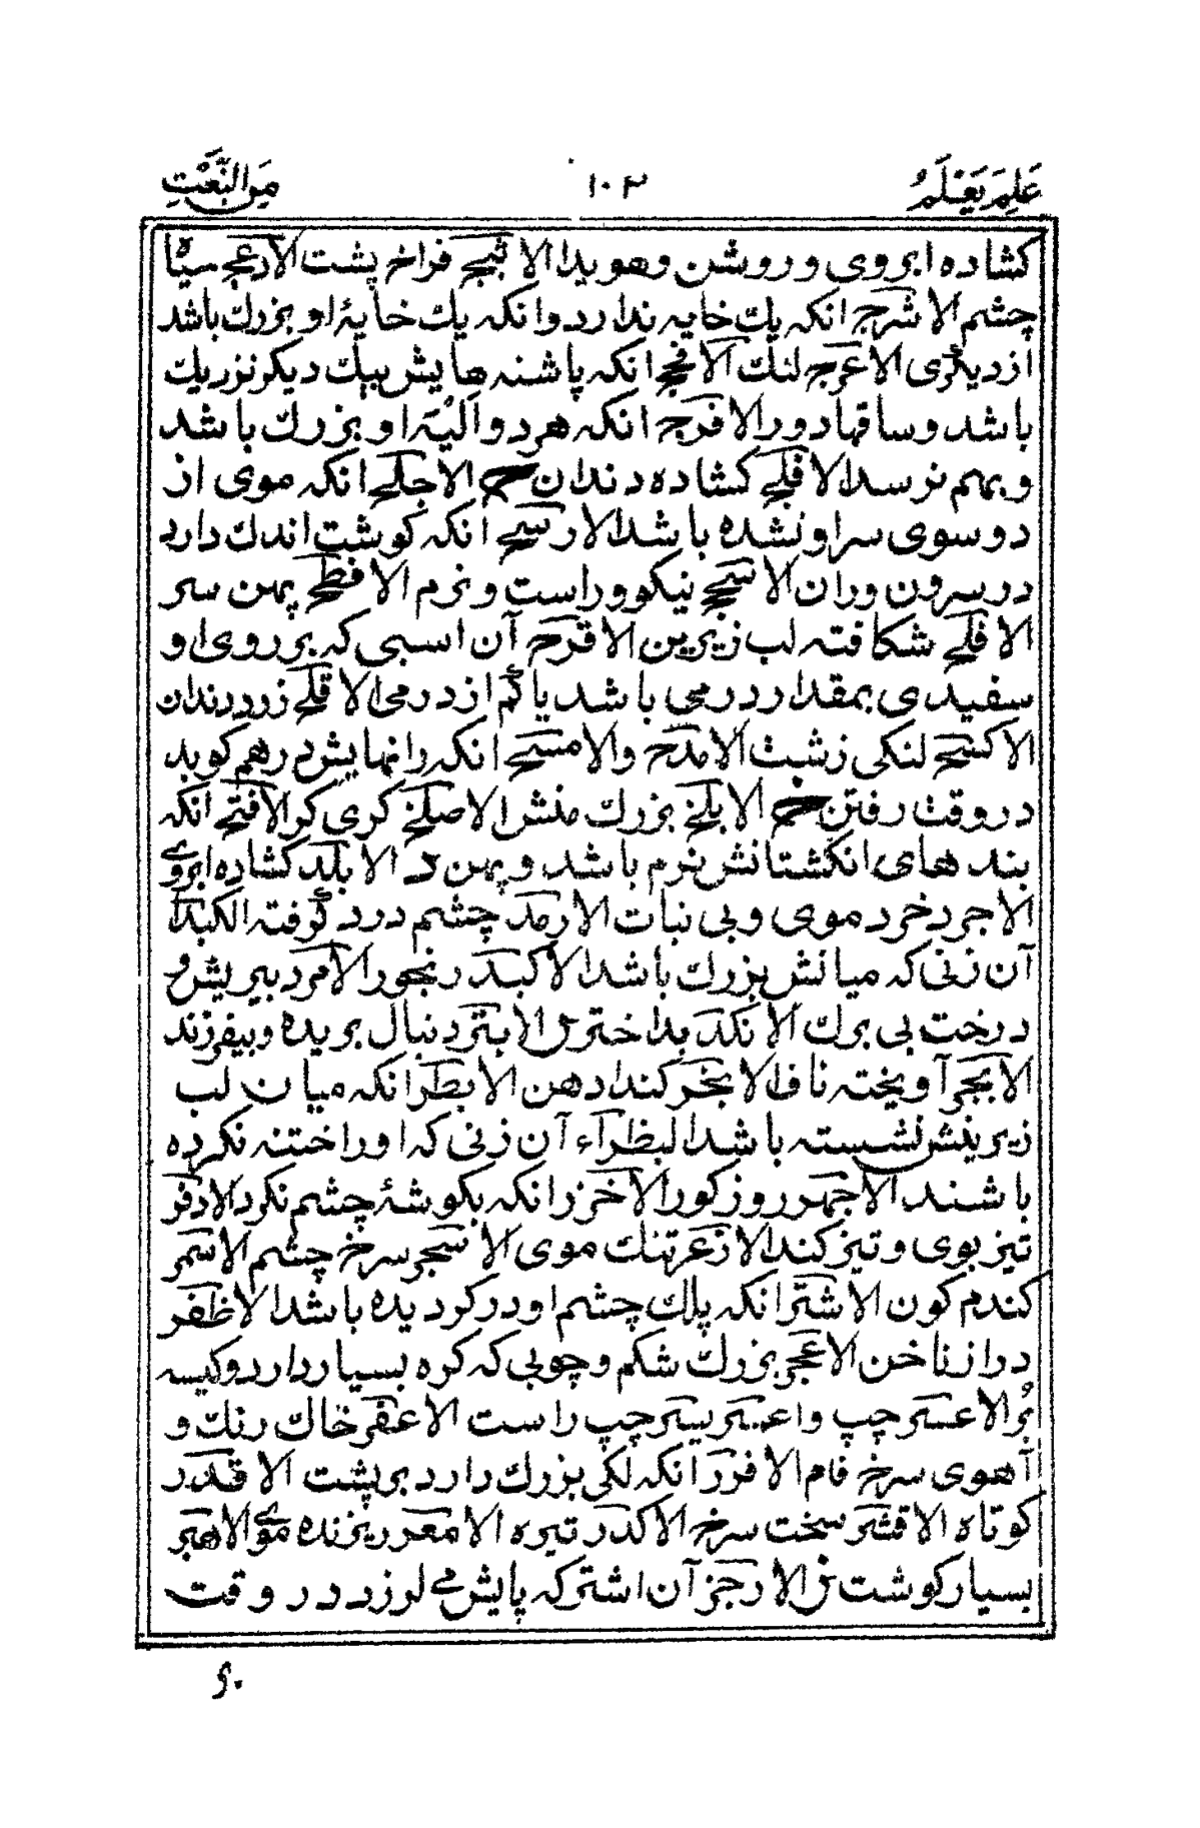 عَلِمَ يَعْلَمُ ١٠٢ مِنَ النَّعْتِ
كشاده ابروی و روشن و هویدا الاثبج فراخ پشت الادعج سیاه
چشم الاشرج انکه یك خایه ندارد وانکه یك خایهٔ او بزرك باشد
از دیگری الاعرج لنك الافحج انکه پاشنه هایش بیك دیکر نزریك
باشد و ساقها دور الافرج انکه هر دو اَلْیَهٔ او بزرك باشد
و بهم نرسد الافلج کشاده دندان ح الاجلح انکه موی از
دو سوی سر او نشده باشد الارسح انکه کوشت اندك دارد
در سرون و ران الاسجح نیکو و راست و نرم الافطح پهن سر
الافلح شکافته لب زیرین الاقرح آن اسبی که بر روی او
سفیدی بمقدار درمی باشد یا کم از درمی الاقلح زرد دندان
الاکسح لنکی زشت الامدح والامسح انکه رانهایش در هم کوبد
در وقت رفتن خ الابلخ بزرك منش الاصلخ کری کر الافتخ انکه
بندهای انکشتانش نرم باشد و پهن د الابلد کشاده ابروی
الاجرد خرد موی و بی نبات الارمد چشم درد گرفته الکبدآ
آن زنی که میانش بزرك باشد الاکبد رنجور الامرد بیریش و
درخت بی برك الانکد بداختر ر الابتر دنبال بریده و بیفرزند
الابجر آویخته ناف الابخر کندا دهن الابظر انکه میان لب
زیرینش نشسته باشد البظرآء آن زنی که او را ختنه نکرده
باشند الاجهر روز کور الاخزر انکه بکوشهٔ چشم نکرد الادفر
تیز بوی و تیز کند الازعر تنك موی الاسجر سرخ چشم الاسمر
کندم کون الاشتر انکه پلك چشم او در کردیده باشد الاظفر
دراز ناخن الاعجر بزرك شکم و چوبی که کره بسیار دارد و کیسه
پُر الاعسر چپ و اعسر یسر چپ راست الاعفر خاك رنك و
آهوی سرخ فام الافزر انکه لکی بزرك دارد بر پشت الاقدر
کوتاه الاقشر سخت سرخ الاکدر تیره الامعر ریزنده موی الاهبر
بسیار کوشت ز الارجز آن اشتر که پایش می لرزد در وقت